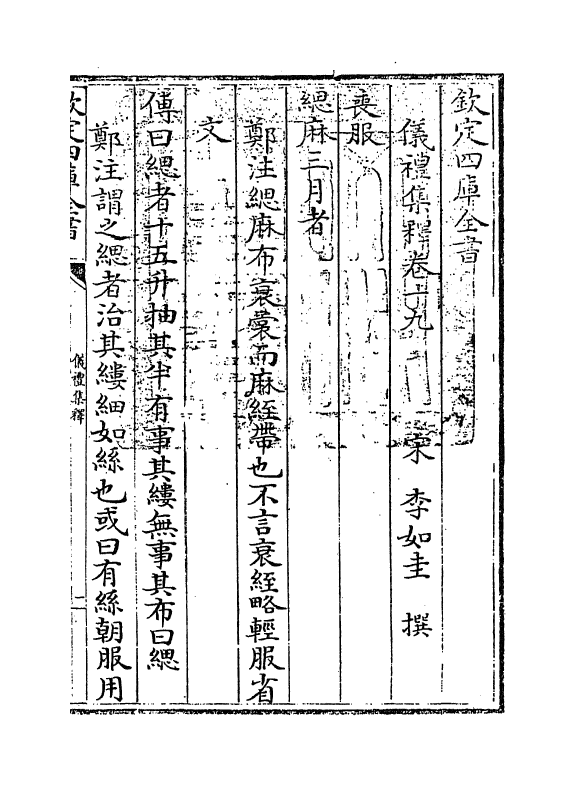 欽定四庫全書
儀禮集釋卷十九
宋 李如圭 撰
喪服
緦麻三月者
鄭注緦麻布衰裳而麻絰帶也不言衰絰略輕服省
文
傳曰緦者十五升抽其半有事其縷無事其布曰緦
鄭注謂之緦者治其縷細如絲也或曰有絲朝服用
欽定四庫全書
儀禮集釋
一